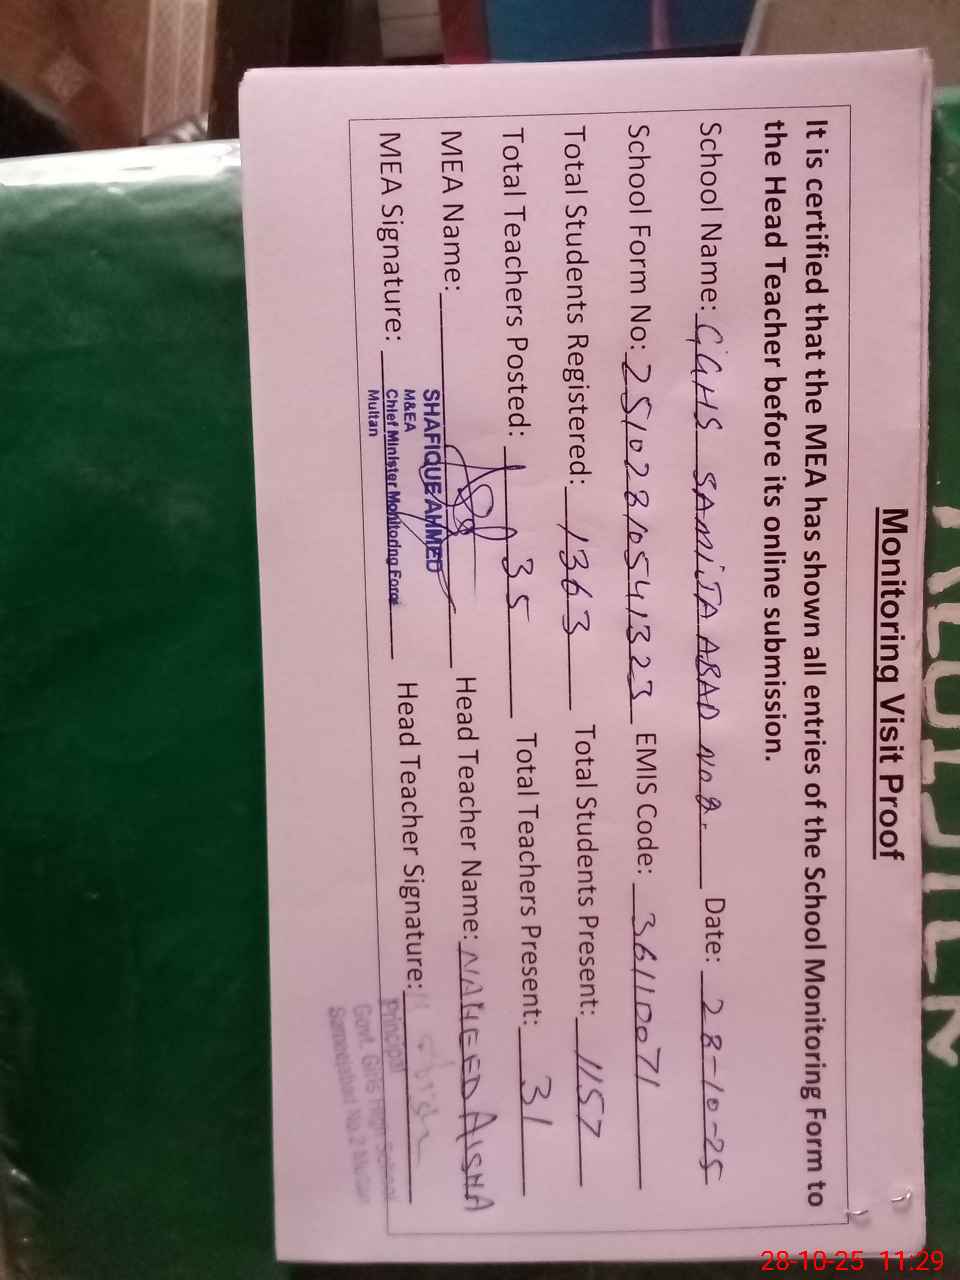 Monitoring Visit Proof
It is certified that the MEA has shown all entries of the School Monitoring Form to
the Head Teacher before its online submission.
School Name: GGHS SAMIJA ABAD No 2. Date: 28-10-25
School Form No: 251028105541323 EMIS Code: 36110071
Total Students Registered: 1363 Total Students Present: 1157
Total Teachers Posted: 35 Total Teachers Present: 31
MEA Name: Head Teacher Name: NAHEED AISHA
SHAFIQUE AHMED
M&EA
MEA Signature: Head Teacher Signature:
Chief Minister Monitoring Force
Multan
Principal
Govt. Girls High School
Sameejabad No.2 Multan
28-10-25 11:29